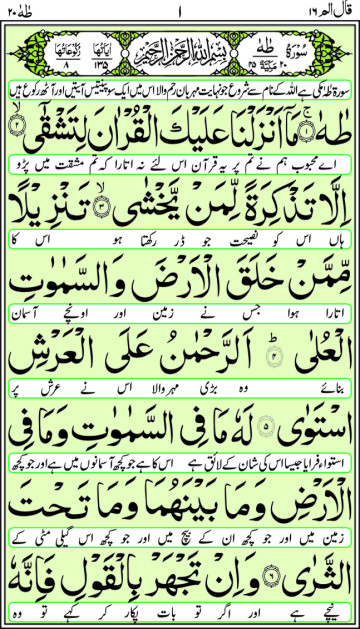 قال الم ١٦
١
طٰهٰ ٢٠
سُوْرَةُ طٰهٰ
٢٠ مَكِّيَّةٌ ٤٥
بِسْمِ اللهِ الرَّحْمٰنِ الرَّحِيْمِ
اٰیَاتُهَا ١٣٥
رُكُوْعَاتُهَا ٨
سورۃ طٰہٰ مکی ہے اللہ کے نام سے شروع جو نہایت مہربان رحم والا اس میں ایک سو پینتیس آیتیں اور آٹھ رکوع ہیں
طٰهٰ ۚ﴿١﴾ مَاۤ اَنْزَلْنَا عَلَیْكَ الْقُرْاٰنَ لِتَشْقٰۤى ۙ﴿٢﴾
اے محبوب ہم نے تم پر یہ قرآن اس لئے نہ اتارا کہ تم مشقت میں پڑو
اِلَّا تَذْكِرَةً لِّمَنْ یَّخْشٰى ۙ﴿٣﴾ تَنْزِیْلًا
ہاں اس کو نصیحت جو ڈر رکھتا ہو اس کا
مِّمَّنْ خَلَقَ الْاَرْضَ وَالسَّمٰوٰتِ
اتارا ہوا جس نے زمین اور اونچے آسمان
الْعُلٰى ؕ﴿٤﴾ اَلرَّحْمٰنُ عَلَى الْعَرْشِ
بنائے وہ بڑی مہر والا اس نے عرش پر
اسْتَوٰى ﴿٥﴾ لَهٗ مَا فِی السَّمٰوٰتِ وَمَا فِی
استواء فرمایا جیسا اس کی شان کے لائق ہے اس کا ہے جو کچھ آسمانوں میں ہے اور جو کچھ
الْاَرْضِ وَمَا بَیْنَهُمَا وَمَا تَحْتَ
زمین میں اور جو کچھ ان کے بیچ میں اور جو کچھ اس گیلی مٹی کے
الثَّرٰى ﴿٦﴾ وَاِنْ تَجْهَرْ بِالْقَوْلِ فَاِنَّهٗ
نیچے ہے اور اگر تو بات پکار کر کہے تو وہ